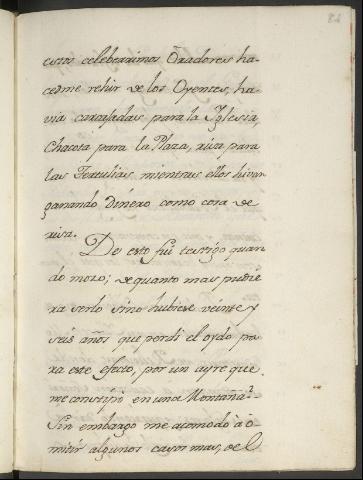 84
estos celeberrimos Oradores ha-
cedme rehir de los Oyentes, ha-
via carcajadas para la Iglesia,
chacota para la Plaza, risa para
las Tertulias mientras ellos hivan
ganando Dinero como cosa de
risa.
De esto fui testigo quan-
do mozo; de quanto mas pudie
ra serlo sino hubiese veinte y
seis años que perdi el oydo pa-
ra este efecto, por un ayre que
me constipò en una Montaña.
Sin embargo me acomodo à o-
mitir algunos casos mas, del